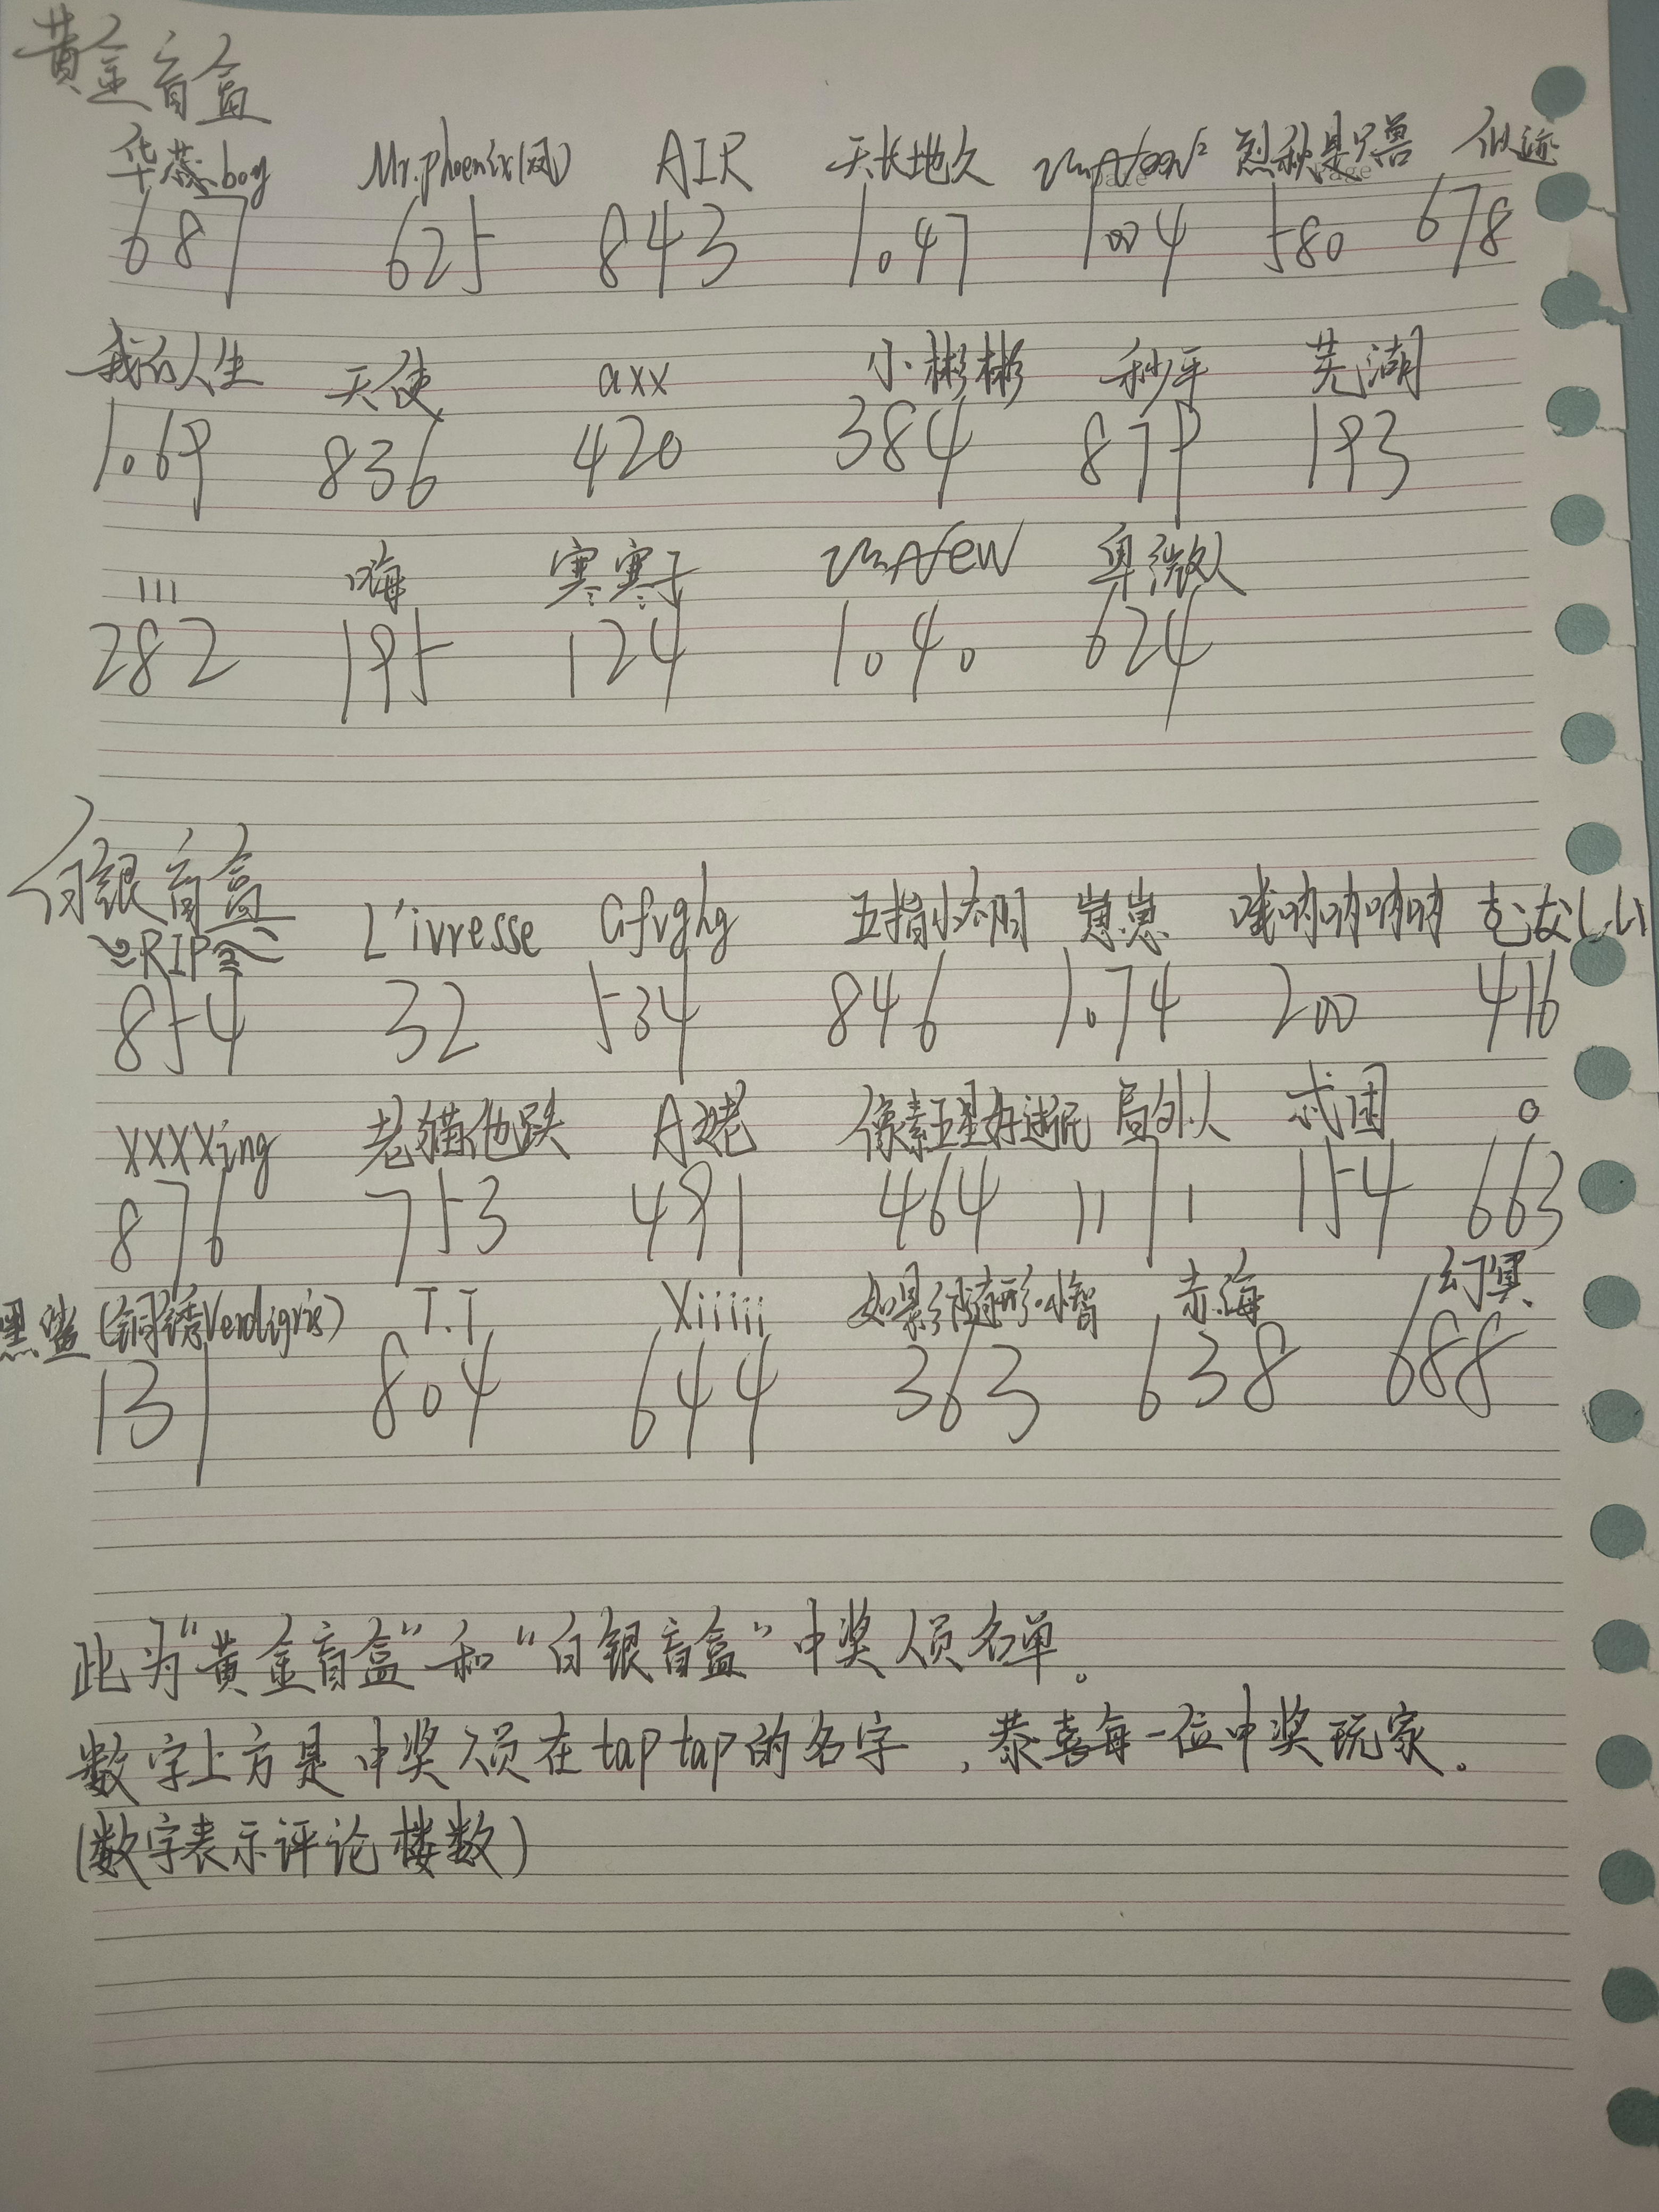 黄金盲盒
华燕boy Mr.phoenix(凤) AIR 天长地久 烈秋是只兽 似迹
687 625 843 1047 1004 580 678
我的人生 天使 axx 小彬彬 秒平 芜湖
1069 836 420 384 879 193
111 嗨 寒寒子 卑微人
282 195 124 1040 624
白银盲盒
RIP L'ivresse Gfvghg 五指 崽崽 哦呐呐呐呐
854 32 534 846 1074 200 416
XXXXing 老猫他跌 A姥 像素五星好逃民 局外人 忒困 。
876 753 491 464 1171 154 663
黑鲨(铜锈Verdigris) T.T Xiiiii 如影随形小智 赤海 幻冥
131 804 644 363 638 688
此为"黄金盲盒"和"白银盲盒"中奖人员名单。
数字上方是中奖人员在taptap的名字,恭喜每一位中奖玩家。
(数字表示评论楼数)